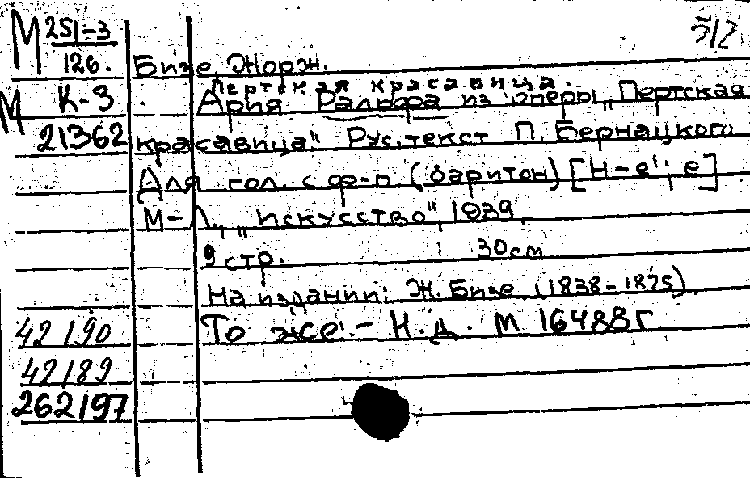 М 251-3 512
126. Бизе, Жорж.
Пертская красавица.
М К-3 Ария Ральфа из оперы „Пертская
21362 красавица“. Рус. текст П. Бернацкого
Для гол. с ф-п (баритон) [H-e'; e]
М-Л, „Искусство“, 1939
9 стр. 30 см
На издании: Ж. Бизе (1838-1875)
42190 То же - Н.Д. М 16488г
42189
262197